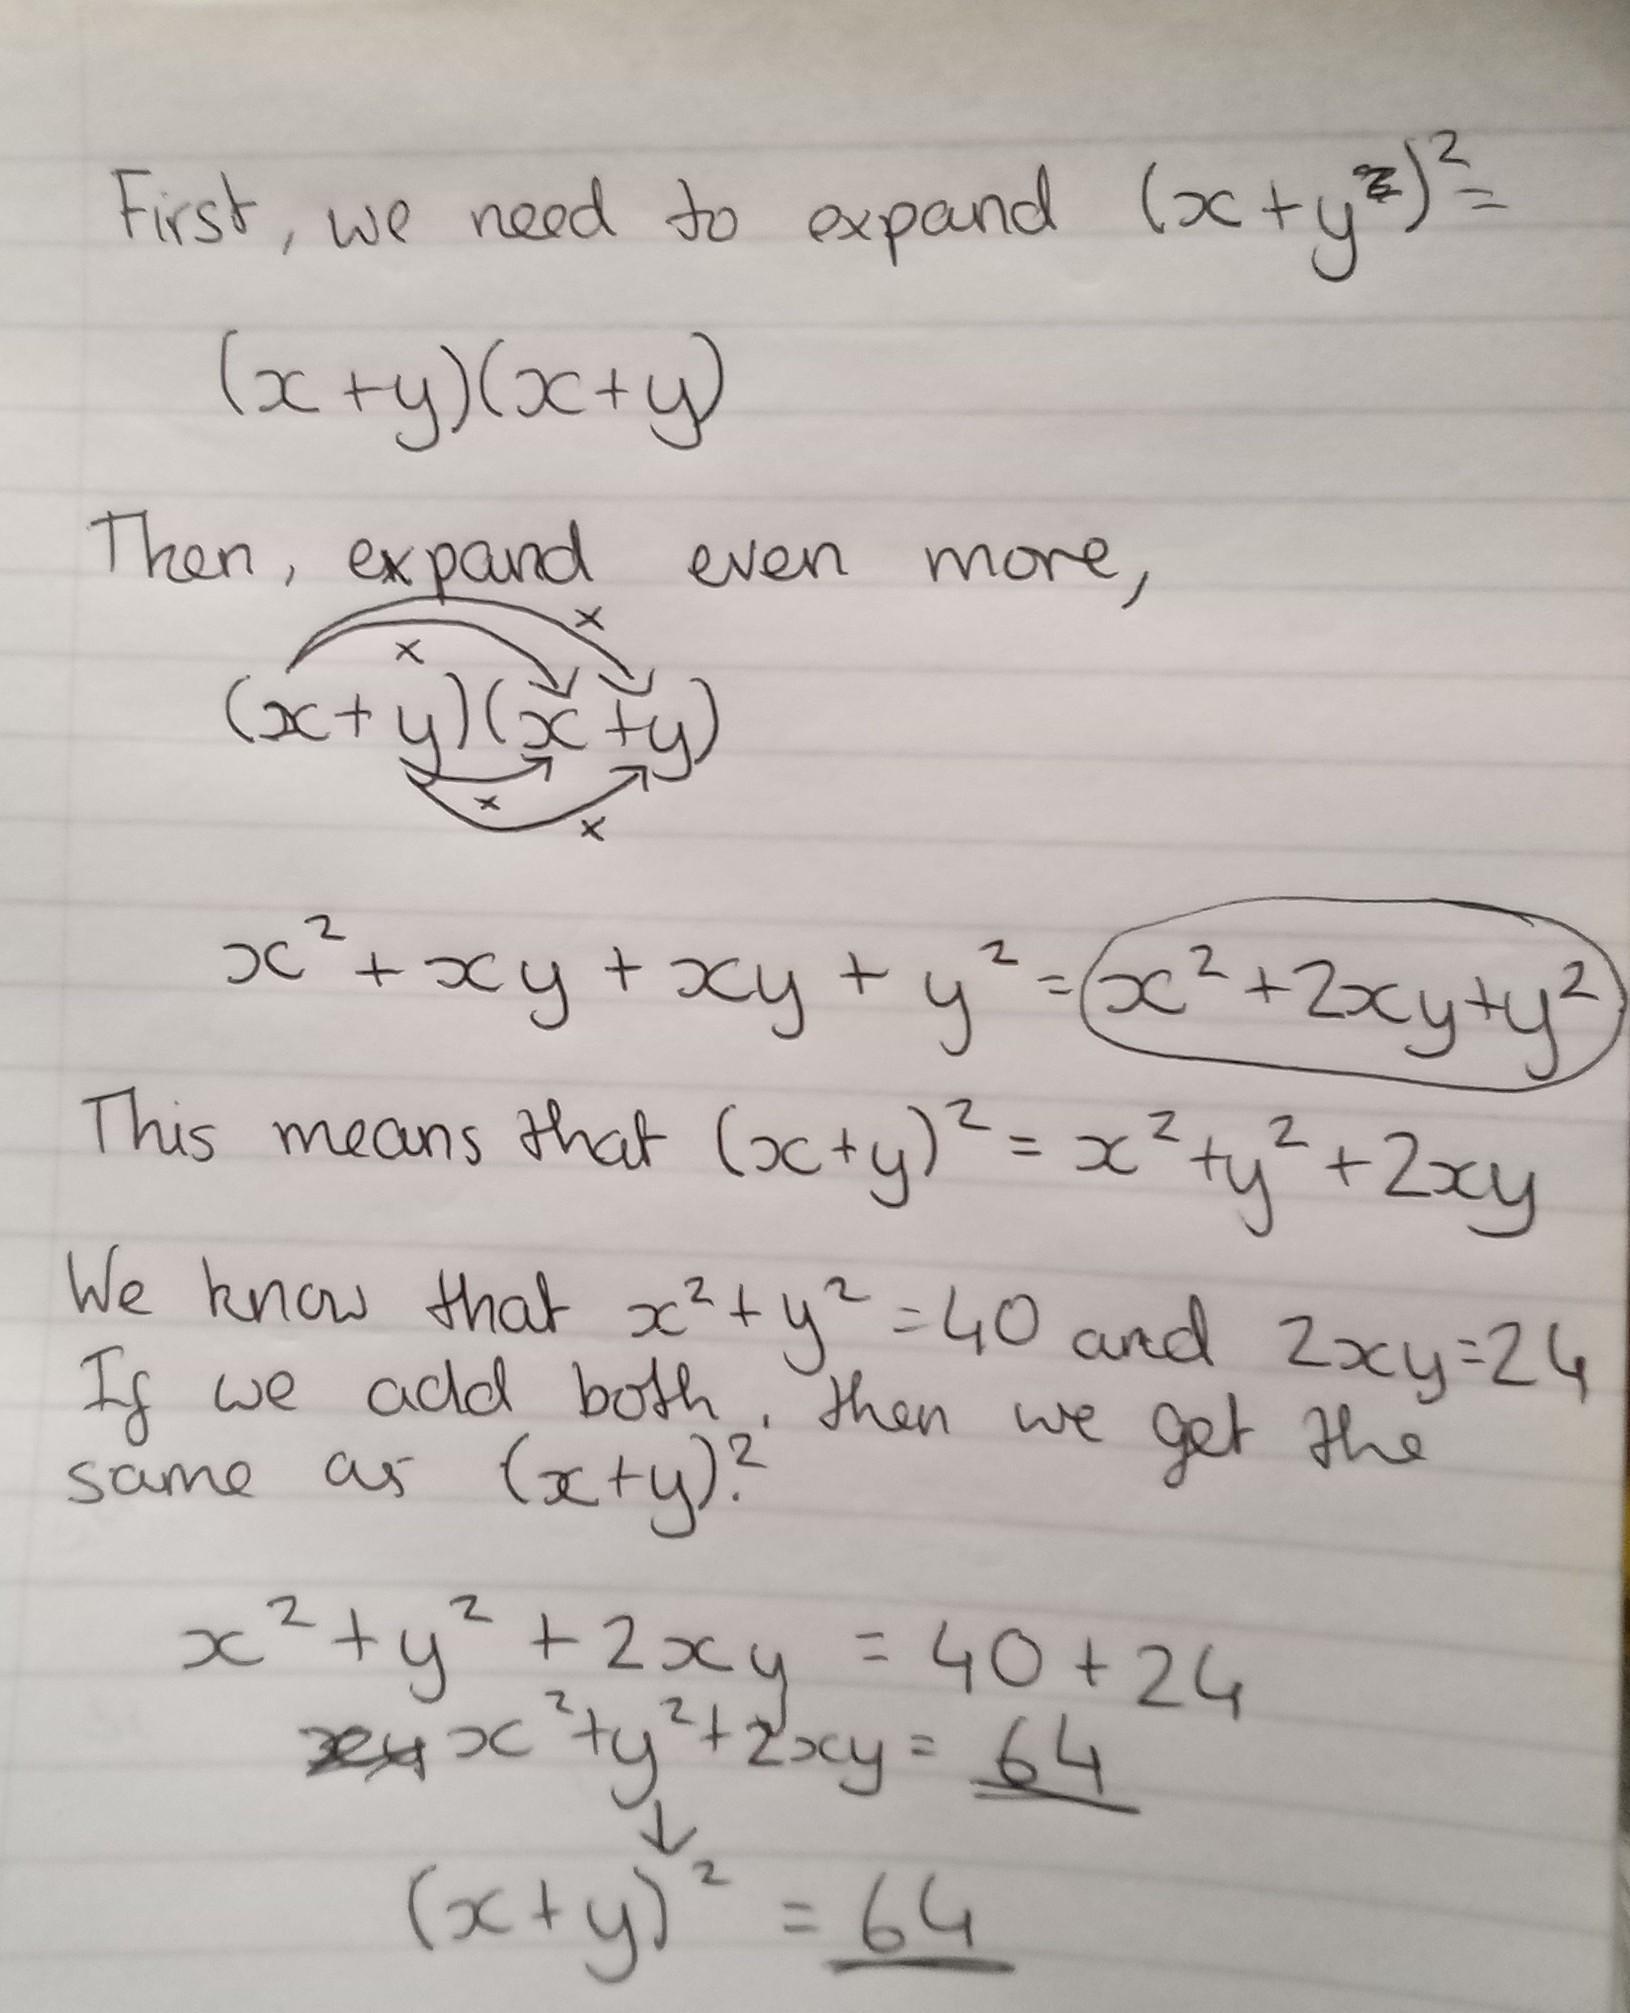 First, we need to expand (x+y)²=
(x+y)(x+y)
Then, expand even more,
x
x
(x+y)(x+y)
x
x
x²+xy+xy+y²=x²+2xy+y²
This means that (x+y)²=x²+y²+2xy
We know that x²+y²=40 and 2xy=24
If we add both, then we get the
same as (x+y)².
x²+y²+2xy = 40+24
x²+y²+2xy = 64
↓
(x+y)² = 64